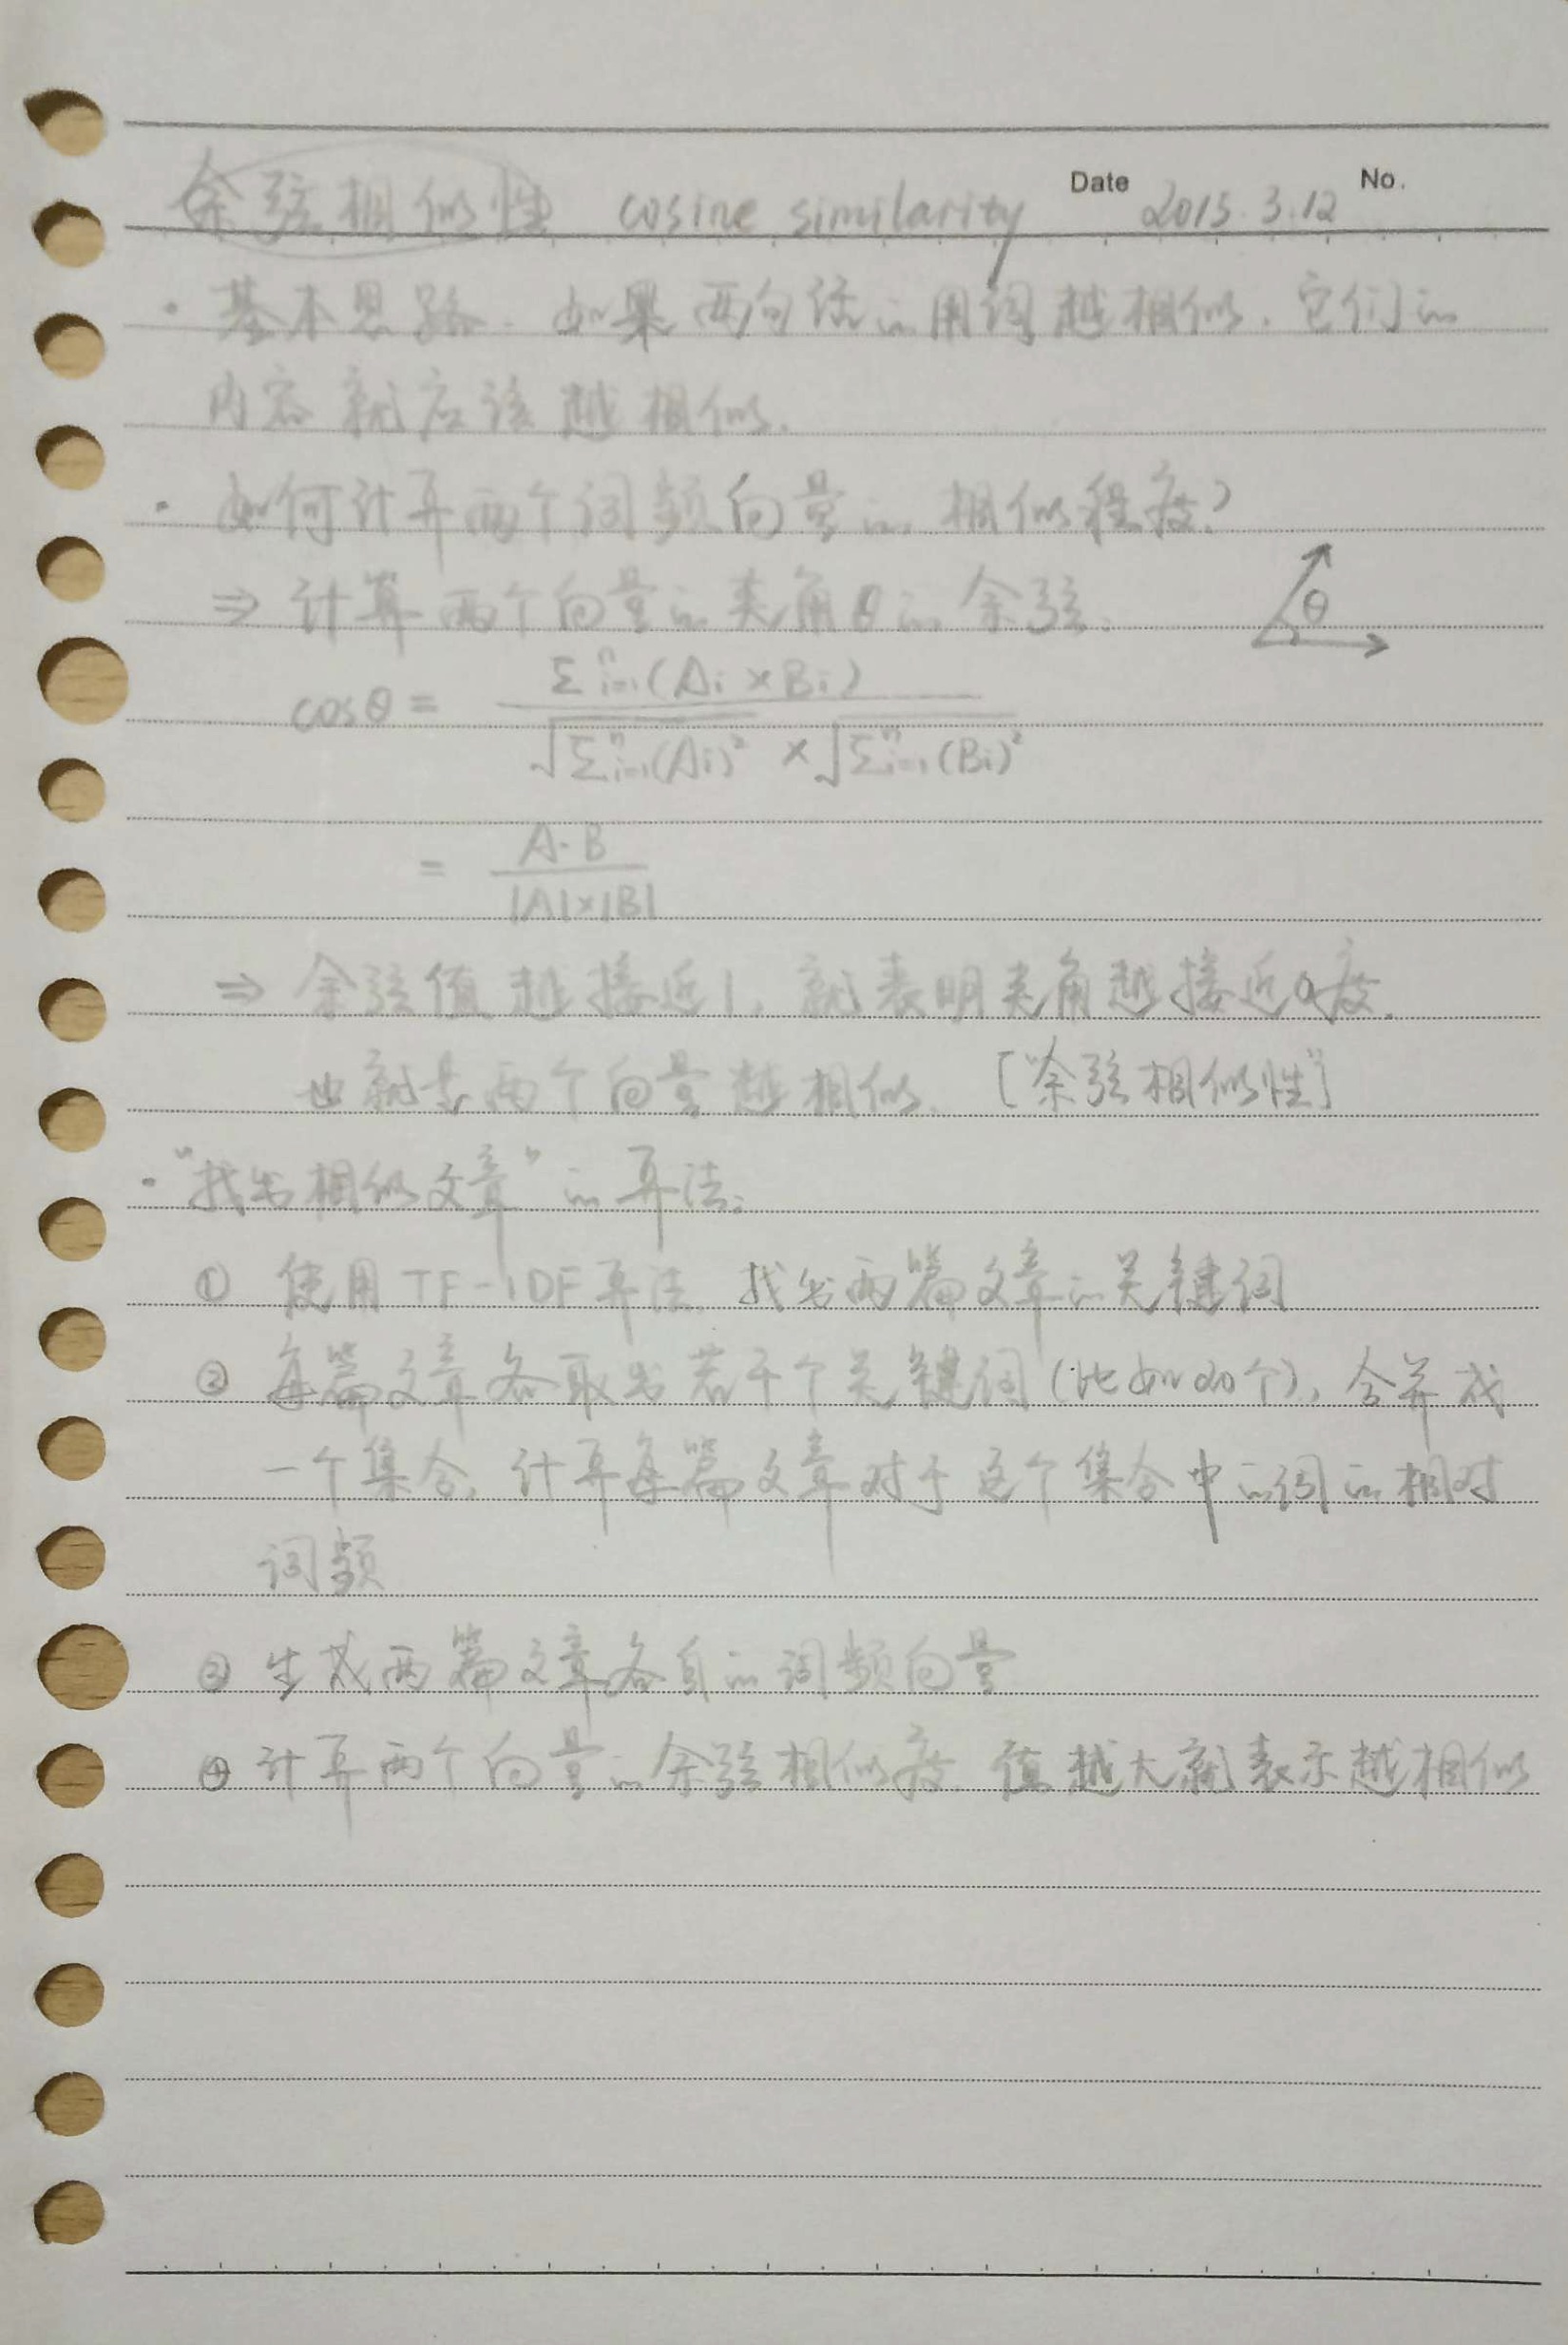 余弦相似性 cosine similarity Date 2015.3.12 No.
· 基本思路. 如果两句话的用词越相似. 它们的
内容就应该越相似.
· 如何计算两个词频向量的相似程度?
⇒ 计算两个向量的夹角θ的余弦. θ
cosθ = Σⁿᵢ₌₁(Ai × Bi) / √Σⁿᵢ₌₁(Ai)² × √Σⁿᵢ₌₁(Bi)²
= A·B / |A|×|B|
⇒ 余弦值越接近1, 就表明夹角越接近0度.
也就是两个向量越相似. ["余弦相似性"]
· "找出相似文章"的算法:
① 使用TF-IDF算法, 找出两篇文章的关键词
② 每篇文章各取出若干个关键词(比如20个), 合并成
一个集合, 计算每篇文章对于这个集合中的词的相对
词频
③ 生成两篇文章各自的词频向量
④ 计算两个向量的余弦相似度, 值越大就表示越相似